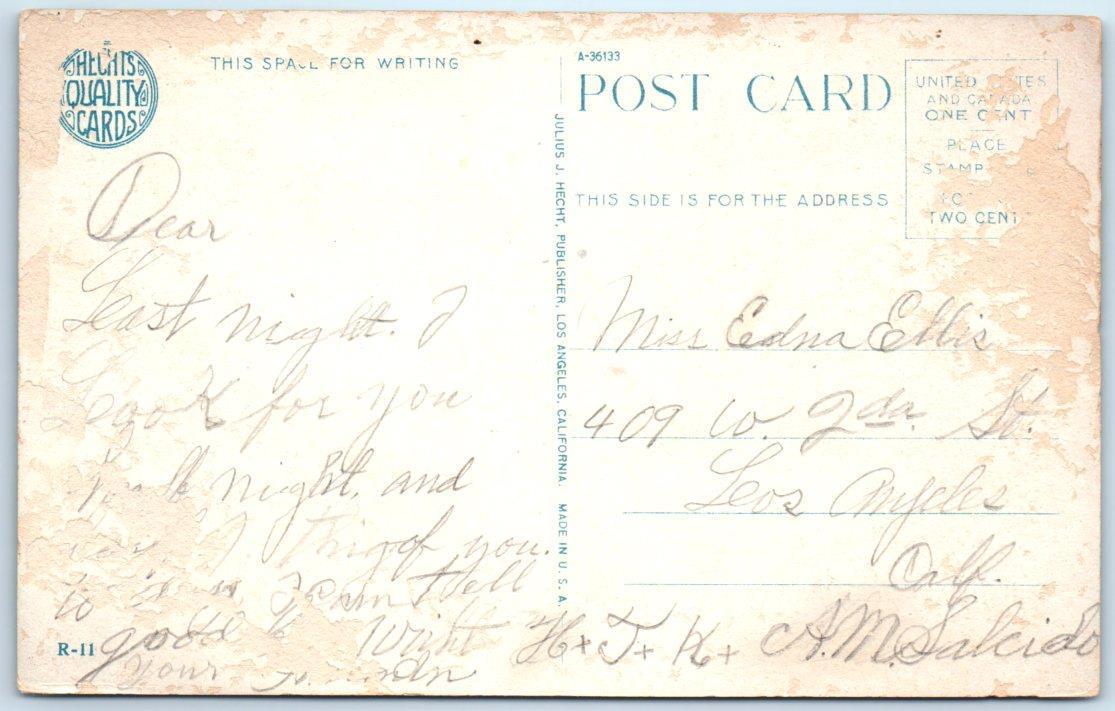 HECHT'S
QUALITY
CARDS
THIS SPACE FOR WRITING
Dear
Last night. I
Look for you
night. and
I. thing of you.
to I can tell
good Wriht
Your
R-11
JULIUS J. HECHT, PUBLISHER, LOS ANGELES, CALIFORNIA. MADE IN U. S. A.
A-36133
POST CARD
THIS SIDE IS FOR THE ADDRESS
UNITED STATES
AND CANADA
ONE CENT
PLACE
STAMP
TWO CENT
Miss Edna Ellis
409 W. 2da. St.
Los Angeles
Calf.
H+ T+ K+ A.M. Salcido